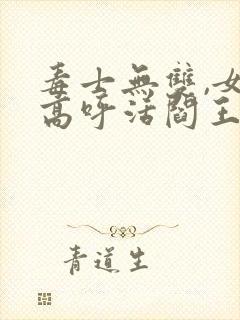 毒士無雙,女
高呼活閻王
青道生